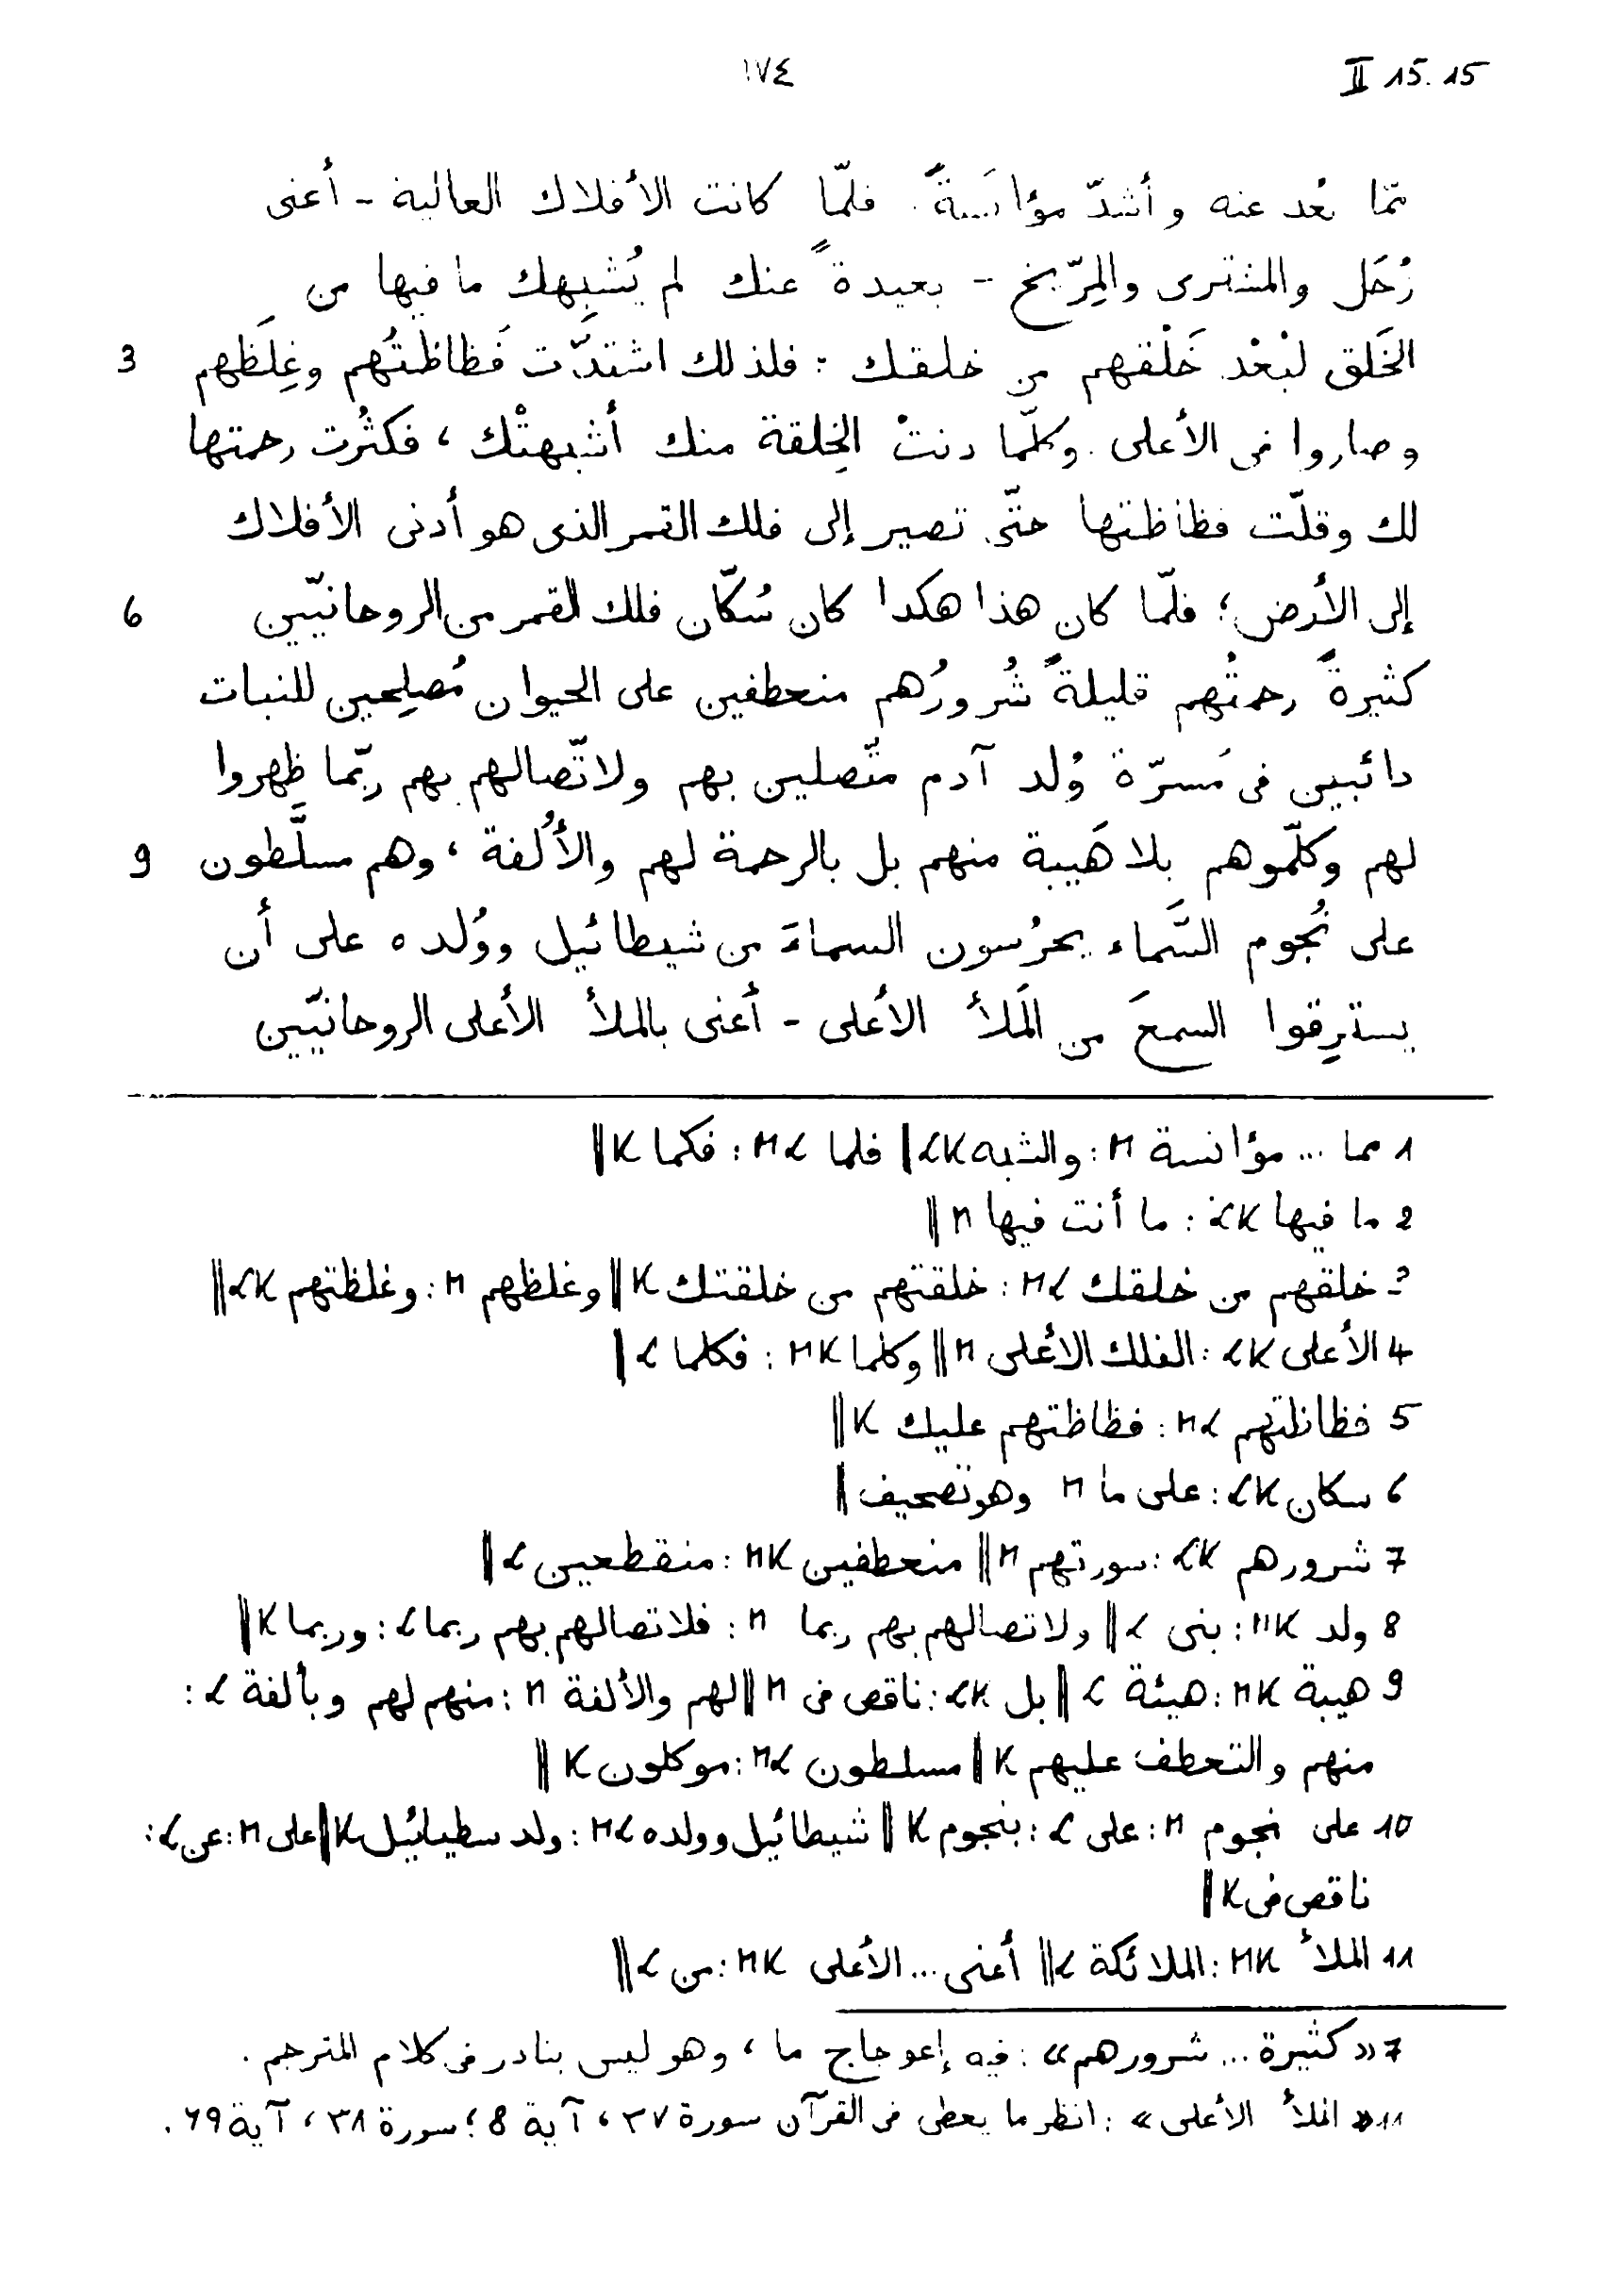 II 15.15
١٧٤
ممّا بعُد عنه وأشدّ مؤانَسةً. فلمّا كانت الأفلاك العالية - أعنى
زُحَل والمشترى والمِرّيخ - بعيدةً عنك لم يُشبِهك ما فيها من
الخَلق لبُعْد خَلْقهم من خلقك؛ فلذلك اشتدّت فَظاظتُهم وغِلَظهم 3
وصاروا فى الأعلى. وكلّما دنتْ الخِلقة منك أشبهتْك، فكثُرت رحمتها
لك وقلّت فظاظتها حتّى تصير إلى فلك القمر الذى هو أدنى الأفلاك
إلى الأرض؛ فلمّا كان هذا هكذا كان سُكّان فلك القمر من الروحانيّين 6
كثيرةً رحمتُهم قليلةً شُرورُهم منعطفين على الحيوان مُصلِحين للنبات
دائبين فى مَسرّة وُلد آدم متّصلين بهم ولاتّصالهم بهم ربّما ظهروا
لهم وكلّموهم بلا هَيبة منهم بل بالرحمة لهم والأُلفة، وهم مسلَّطون 9
على نُجوم السَّماء يحرُسون السماءَ من شيطائيل ووُلده على أن
يسترِقوا السمعَ من المَلأ الأعلى - أعنى بالملأ الأعلى الروحانيّين
1 مما ... مؤانسة M: والشبه LK‖ فلما ML: فكما K‖
2 ما فيها LK: ما أنت فيها M‖
3 خلقهم من خلقك ML: خلقتهم من خلقتك K‖ وغلظهم M: وغلظتهم LK‖
4 الأعلى LK: الفلك الأعلى M‖ وكلما MK: فكلما L‖
5 فظاظتهم ML: فظاظتهم عليك K‖
6 سكان LK: على ما M وهو تصحيف‖
7 شرورهم LK: سورتهم M‖ منعطفين MK: منقطعين L‖
8 ولد MK: بنى L‖ ولاتصالهم بهم ربما M: فلاتصالهم بهم ربما L: وربما K‖
9 هيبة MK: هيئة L‖ بل LK: ناقص فى M‖ لهم والألفة M: منهم لهم وبألفة L:
منهم والتعطف عليهم K‖ مسلطون ML: موكلون K‖
10 على نجوم M: على L: بنجوم K‖ شيطائيل وولده ML: ولد سطيائيل K‖ على M: عن L:
ناقص فى K‖
11 الملأ MK: الملائكة L‖ أعنى ... الأعلى MK: من L‖
7 «كثيرة ... شرورهم»: فيه إعوجاج ما، وهو ليس بنادر فى كلام المترجم.
11 «الملأ الأعلى»: انظر ما يعطى فى القرآن سورة ٣٧، آية 8؛ سورة ٣٨، آية ٦9.